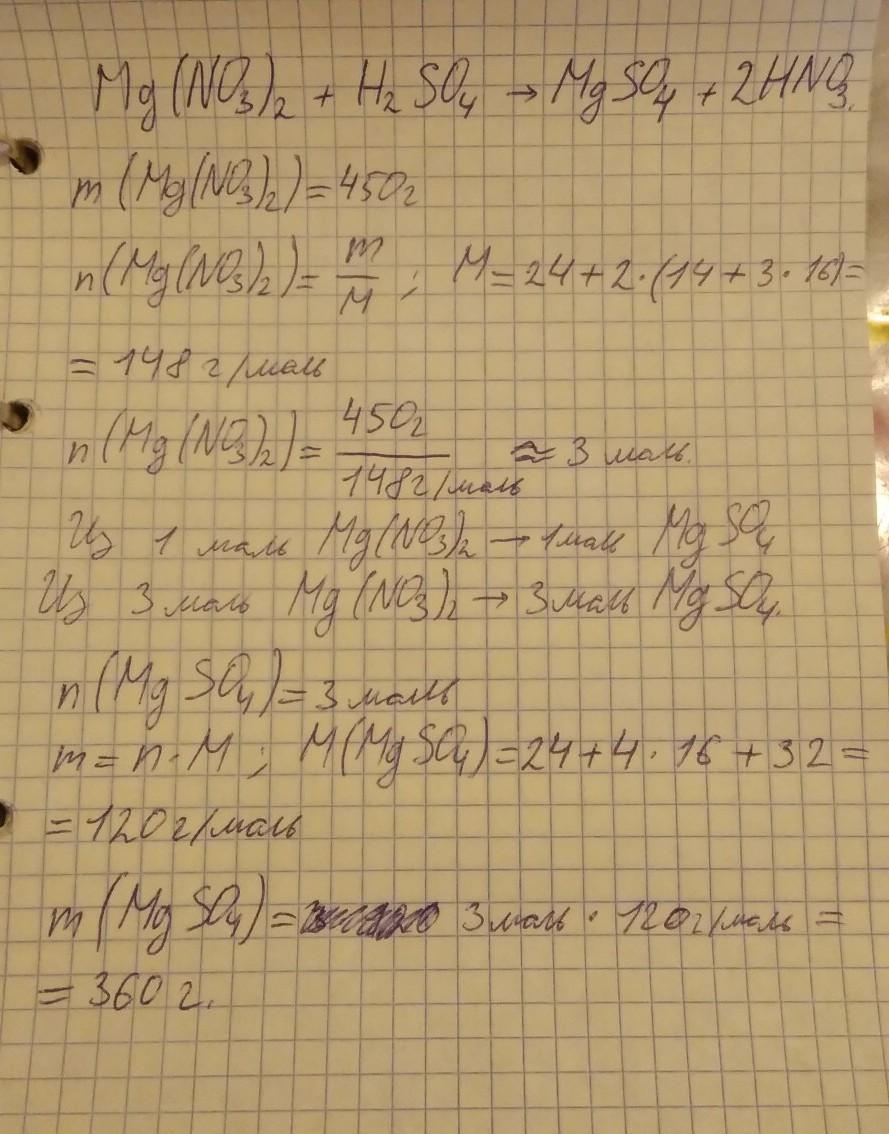 Mg(NO₃)₂ + H₂SO₄ → MgSO₄ + 2HNO₃.
m(Mg(NO₃)₂) = 450г
n(Mg(NO₃)₂) = m/M ; M = 24 + 2·(14 + 3·16) =
= 148 г/моль
n(Mg(NO₃)₂) = 450г/148г/моль ≈ 3 моль.
Из 1 моль Mg(NO₃)₂ → 1 моль MgSO₄
Из 3 моль Mg(NO₃)₂ → 3 моль MgSO₄.
n(MgSO₄) = 3 моль
m = n·M ; M(MgSO₄) = 24 + 4·16 + 32 =
= 120 г/моль
m(MgSO₄) = 3 моль · 120 г/моль =
= 360 г.